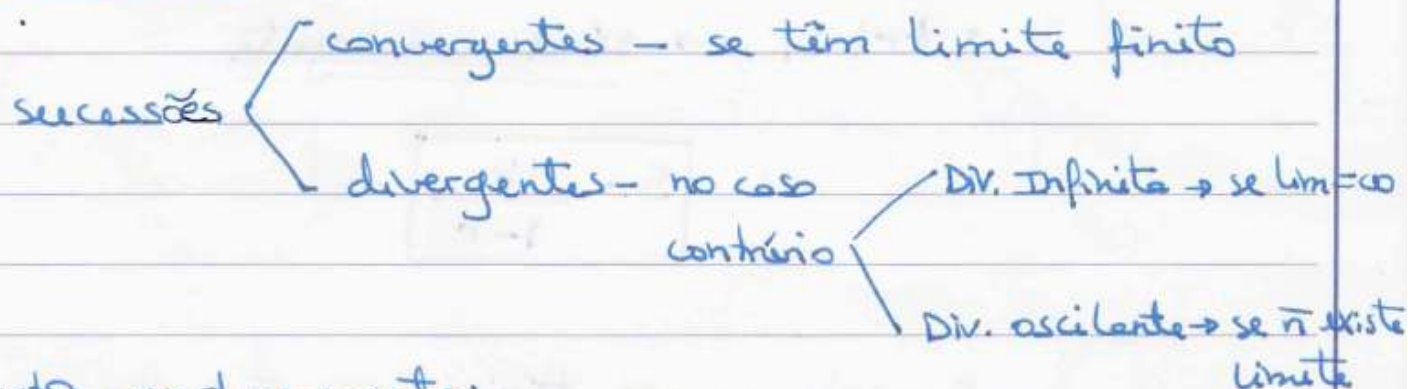 convergentes – se têm limite finito
sucessões
divergentes – no caso contrário
Div. Infinita → se lim = ∞
Div. oscilante → se n̄ existe limite